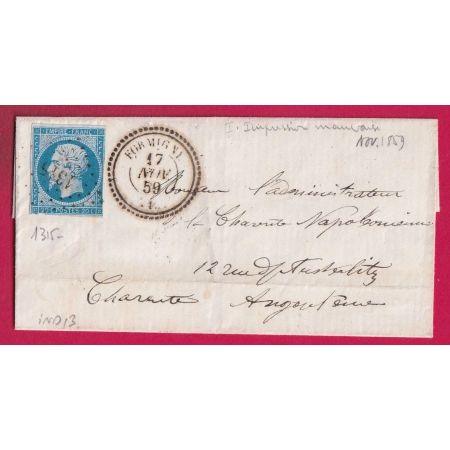 I. Impression mauvaise
NOV. 1859
EMPIRE FRANC
20 C POSTES 20 C
FORMIGNY
17
NOV
59
1315
Monsieur l'administrateur
de la Charente Napoléonienne
12 rue d'Austerlitz
Charente Angoulême
1315-
IND 13